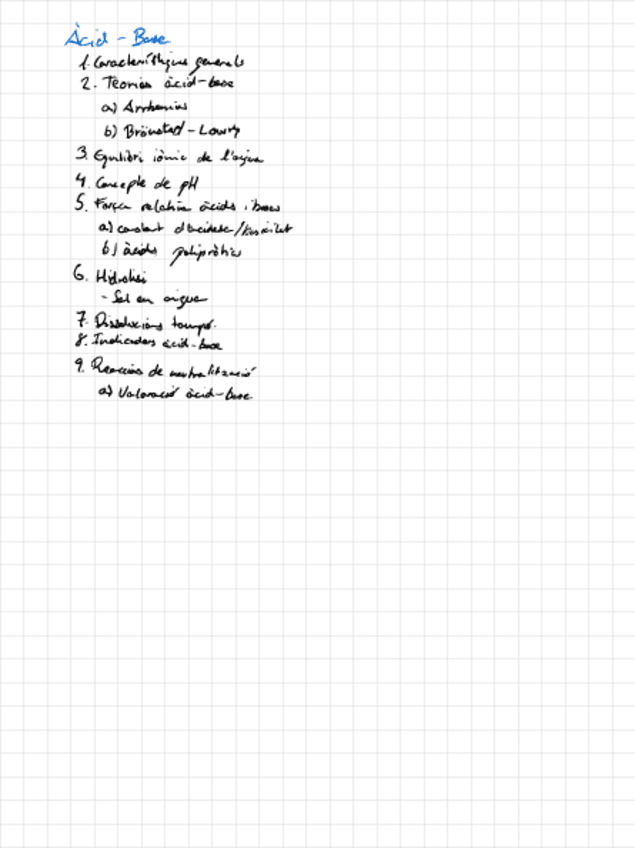 Àcid - Base
1. Característiques generals
2. Teories àcid-base
a) Arrhenius
b) Brönsted - Lowry
3. Equilibri iònic de l'aigua
4. Concepte de pH
5. Força relativa àcids i bases
a) constant d'acidesa/basicitat
b) àcids polipròtics
6. Hidròlisi
- Sal en aigua
7. Dissolucions tampó.
8. Indicadors àcid-base
9. Reaccions de neutralització
a) Valoració àcid-base